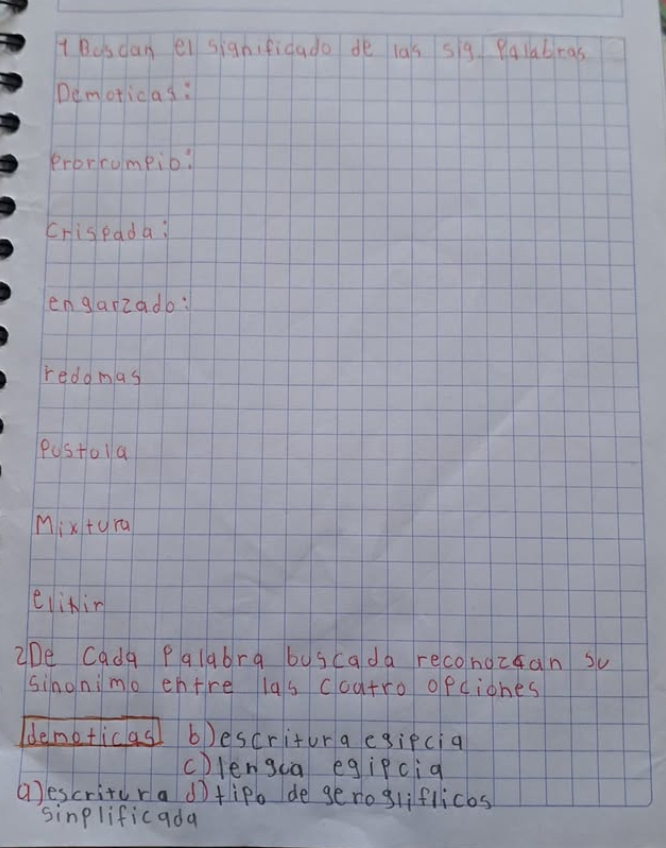 1 Buscan el significado de las sig. Palabras
Demoticas:
Prorrumpio:
Crispada:
engarzado:
redomas
Pustula
Mixtura
elixir
2 De cada Palabra buscada reconozcan su
sinonimo entre las cuatro opciones
demoticas b) escritura egipcia
c) lengua egipcia
a) escritura d) tipo de geroglificos
sinplificada